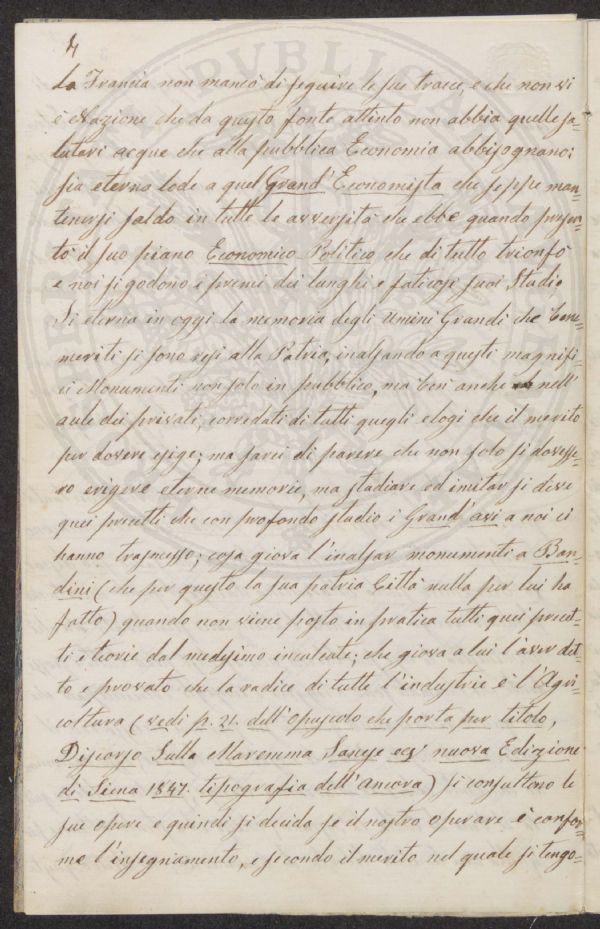 4
La Francia non mancò di seguire le sue tracce, e che non vi
è Nazione che da questo fonte attinto non abbia quelle sa-
lutari acque che alla pubblica Economia abbisognano;
sia eterna lode a quel Grand' Economista che seppe man-
tenersi saldo in tutte le avversità che ebbe quando presen-
tò il suo piano Economico Politico che di tutto trionfò
e noi si godono i premi dei lunghi e faticosi suoi Studi
Si eterna in oggi la memoria degli Uomini Grandi che bene-
meriti si sono resi alla Patria, inalzando a questi magnifi-
ci Monumenti non solo in pubblico, ma ben' anche nell'
aule dei privati, corredati di tutti quegli elogi che il merito
per dovere esige; ma sarei di parere che non solo si dovesse-
ro erigere eterne memorie, ma studiare ed imitar si deve
quei precetti che con profondo studio i Grand' avi a noi ci
hanno trasmesso; cosa giova l'inalzar monumenti a Ban-
dini (che per questo la sua patria Città nulla per lui ha
fatto) quando non viene posto in pratica tutti quei precet-
ti e teorie dal medesimo inculcate; che giova a lui l'aver det-
to e provato che la radice di tutte l'industrie è l'Agri-
coltura (vedi p. 21. dell'opuscolo che porta per titolo,
Discorso Sulla Maremma Sanese nuova Edizione
di Siena 1847. tipografia dell'Ancora) si consultono le
sue opere e quindi si decida se il nostro operare è confor-
me l'insegnamento, e secondo il merito nel quale si tengo-